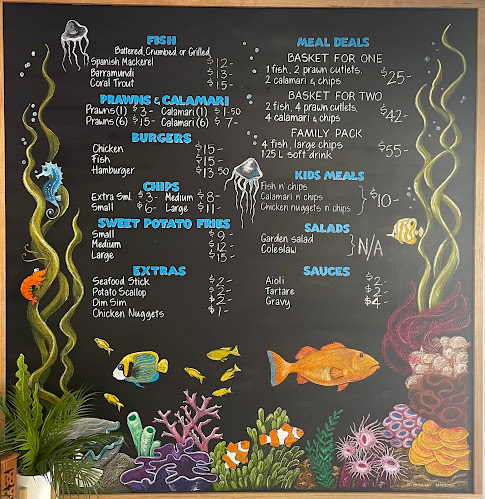 FISH
Battered, Crumbed or Grilled
Spanish Mackerel $12-
Barramundi $13-
Coral Trout $15-
PRAWNS & CALAMARI
Prawns (1) $3- Calamari (1) $1.50
Prawns (6) $15- Calamari (6) $7-
BURGERS
Chicken $15-
Fish $15-
Hamburger $13.50
CHIPS
Extra Sml. $3- Medium $8-
Small $6- Large $11-
SWEET POTATO FRIES
Small $9-
Medium $12-
Large $15-
EXTRAS
Seafood Stick $2-
Potato Scallop $2-
Dim Sim $2-
Chicken Nuggets $1-
MEAL DEALS
BASKET FOR ONE
1 fish, 2 prawn cutlets,
2 calamari & chips $25-
BASKET FOR TWO
2 fish, 4 prawn cutlets,
4 calamari & chips $42-
FAMILY PACK
4 fish, large chips
1.25 L soft drink $55-
KIDS MEALS
Fish n' chips
Calamari n' chips $10-
Chicken nuggets n' chips
SALADS
Garden salad
Coleslaw N/A
SAUCES
Aioli $2-
Tartare $2-
Gravy $4-